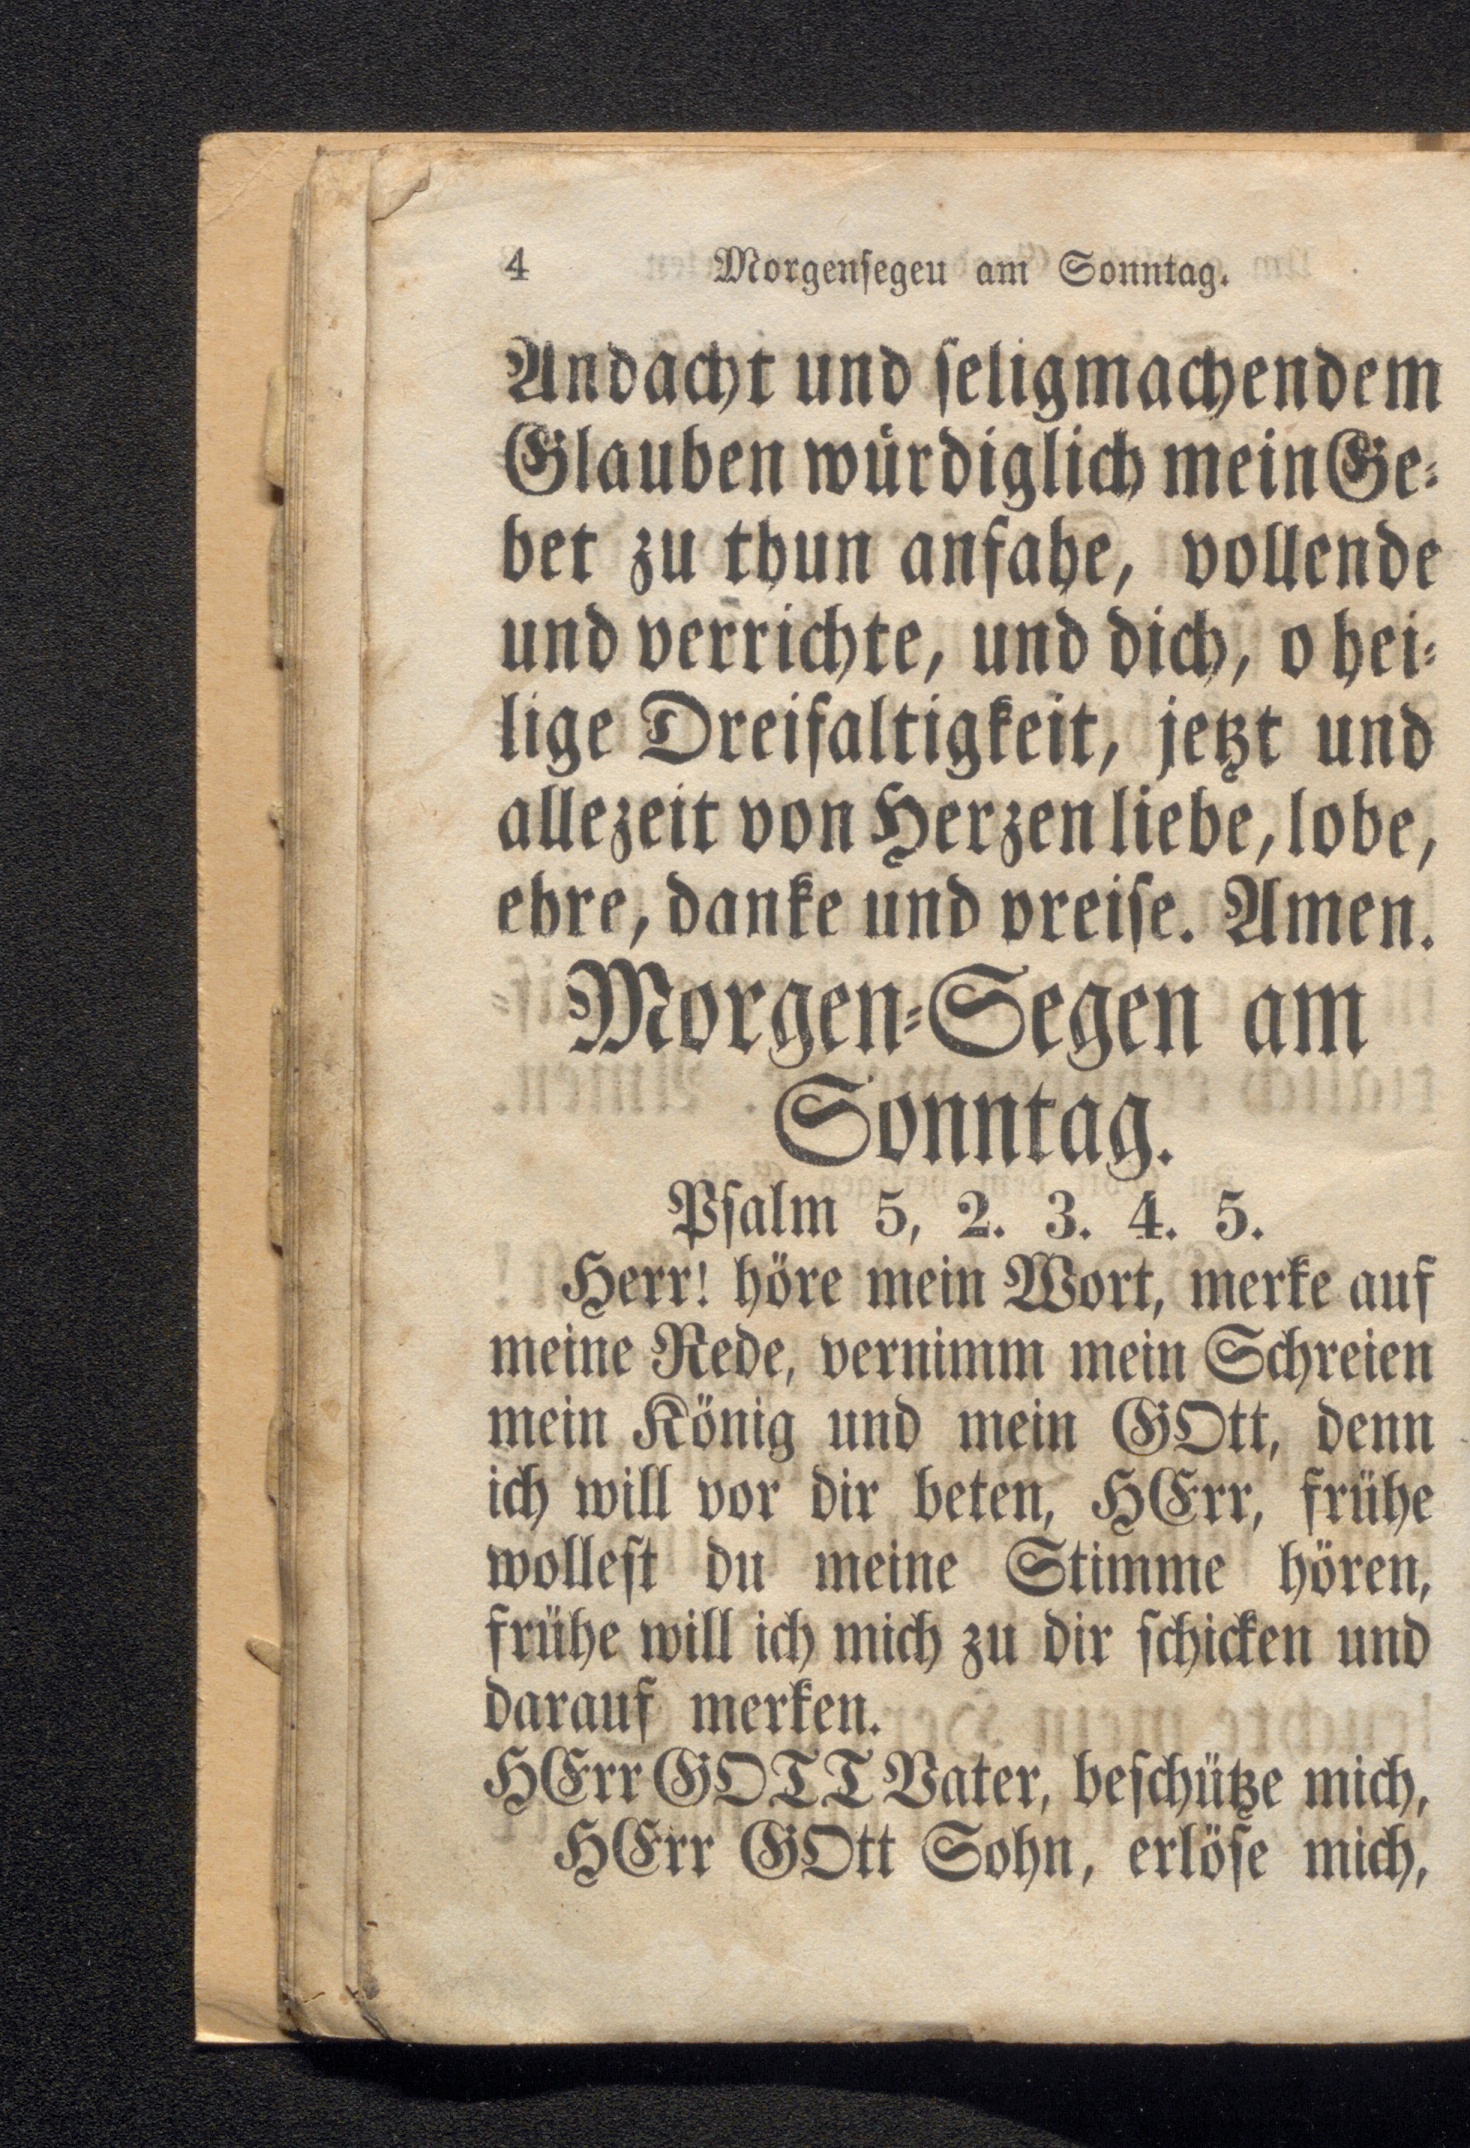 4 Morgensegeu am Sonntag.
Andacht und ſeligmachendem
Glauben würdiglich mein Ge⸗
bet zu thun anfahe, vollende
und verrichte, und dich, o hei⸗
lige Dreifaltigkeit, jetzt und
allezeit von Herzen liebe, lobe,
ehre, danke und preiſe. Amen.
Morgen⸗Segen am
Sonntag.
Pſalm 5, 2. 3. 4. 5.
Herr! höre mein Wort, merke auf
meine Rede, vernimm mein Schreien
mein König und mein GOtt, denn
ich will vor dir beten, HErr, frühe
wolleſt du meine Stimme hören,
frühe will ich mich zu dir ſchicken und
darauf merken.
HErr GOTT Vater, beſchütze mich,
HErr GOtt Sohn, erlöſe mich,